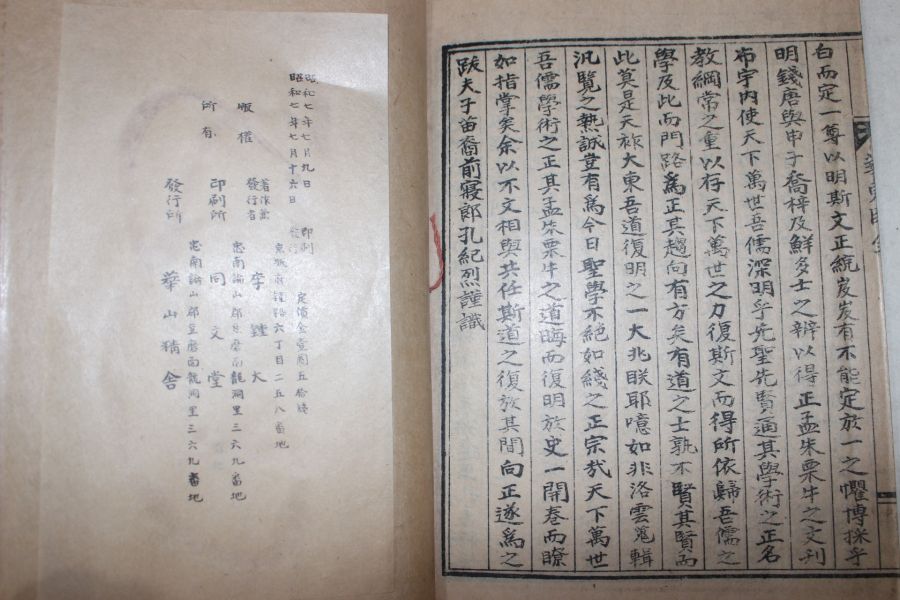 白而定一尊以明斯文正統岌岌有不能定於一之懼博採乎
明錢唐與申子喬梓及鮮多士之辨以得正孟朱栗牛之文刊
布宇內使天下萬世吾儒深明乎先聖先賢通其學術之正名
教綱常之重以存天下萬世之力復斯文而得所依歸吾儒之
學及此而門路爲正其趨向有方矣有道之士孰不賢其賢而
此莫是天祚大東吾道復明之一大兆眹耶噫如非洛雲蒐輯
汎覽之熱誠豈有爲今日聖學不絕如綫之正宗哉天下萬世
吾儒學術之正其孟朱栗牛之道晦而復明於史一開卷而瞭
如指掌矣余以不文相與共任斯道之復於其間向正遂爲之
跋夫子苗裔前寢郎孔紀烈謹識
昭和七年七月九日 印刷
昭和七年七月十六日 發行
定價金壹圓五拾錢
版權
所有
著作兼
發行者
京城府鍾路六丁目二五八番地
李鍾大
忠南論山郡豆磨面龍洞里三六九番地
印刷所 同文堂
忠南論山郡豆磨面龍洞里三六九番地
發行所 華山精舍